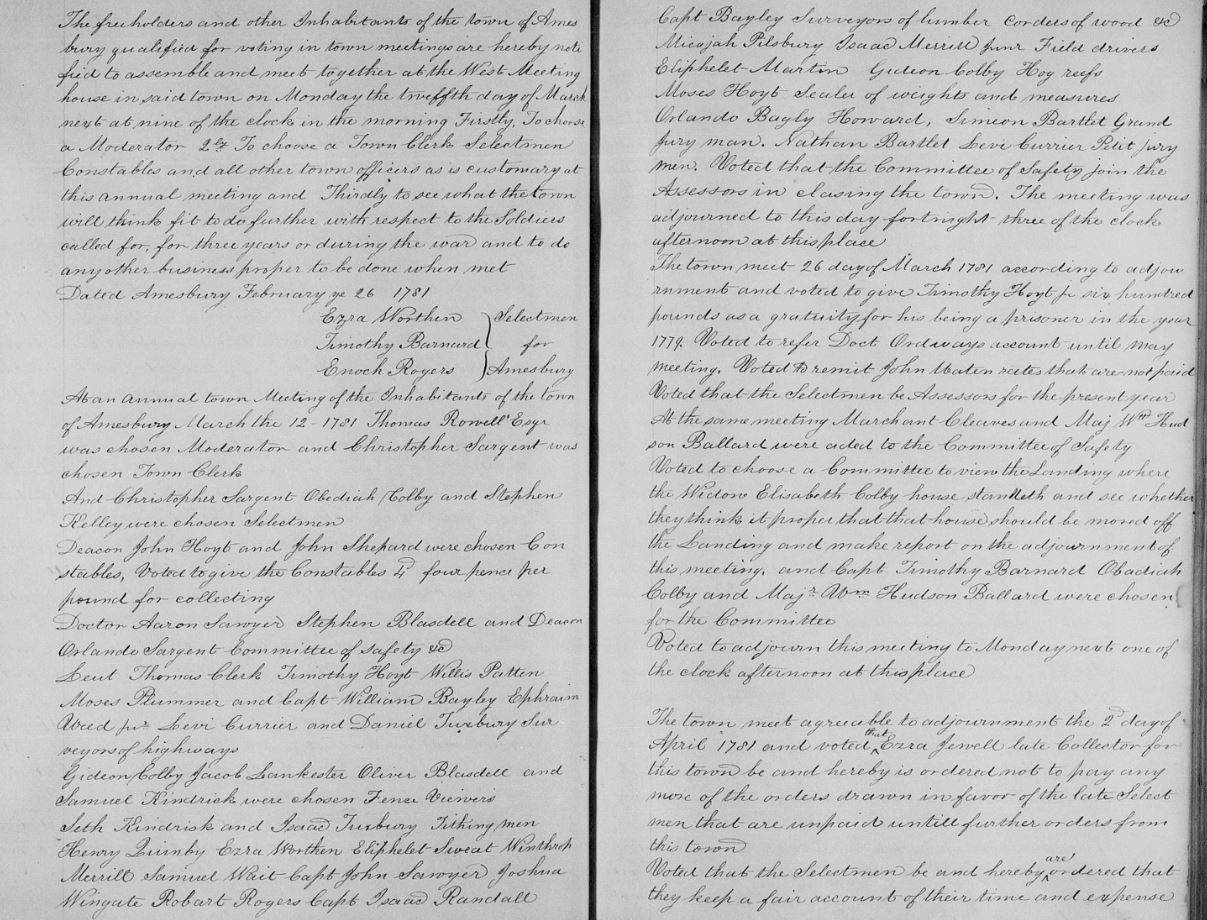 The freeholders and other Inhabitants of the town of Ames
bury qualified for voting in town meetings are hereby noti
fied to assemble and meet together at the West Meeting
house in said town on Monday the twelfth day of March
next at nine of the clock in the morning Firstly, To choose
a Moderator 2ly To choose a Town Clerk Selectmen
Constables and all other town officers as is customary at
this annual meeting and Thirdly to see what the town
will think fit to do further with respect to the Soldiers
called for, for three years or during the war and to do
any other business proper to be done when met
Dated Amesbury February ye 26 1781
Ezra Worthen } Selectmen
Timothy Barnard } for
Enoch Rogers } Amesbury
At an annual town Meeting of the Inhabitants of the town
of Amesbury March the 12 - 1781 Thomas Rowell Esqr
was chosen Moderator and Christopher Sargent was
chosen Town Clerk
And Christopher Sargent Obadiah Colby and Stephen
Kelley were chosen Selectmen
Deacon John Hoyt and John Shepard were chosen Con
stables, Voted to give the Constables 4d four pence per
pound for collecting
Doctor Aaron Sawyer Stephen Blasdell and Deacon
Orlando Sargent Committee of safety &c
Leut Thomas Clerk Timothy Hoyt Willis Patten
Moses Plummer and Capt William Bayley Ephraim
Weed junr Levi Currier and Daniel Tuxbury Sur
veyors of highways
Gideon Colby Jacob Lankester Oliver Blasdell and
Samuel Kindrick were chosen Fence Viewers
Seth Kindrick and Isaac Tuxbury Tithing men
Henry Quinby Ezra Worthen Eliphelet Sweat Winthrop
Merrill Samuel Wait Capt John Sawyer Joshua
Wingate Robert Rogers Capt Isaac Randall
Capt Bayley Surveyors of lumber Corders of wood &c
Micajah Pilsbury Isaac Merrill junr Field drivers
Eliphelet Martin Gideon Colby Hog reefs
Moses Hoyt Sealer of weights and measures
Orlando Bagly Howard, Simeon Bartlet Grand
jury man. Nathan Bartlet Levi Currier Petit jury
men. Voted that the Committee of Safety join the
Assessors in clasing the town. The meeting was
adjourned to this day fortnight three of the clock
afternoon at this place
The town meet 26 day of March 1781 according to adjou
rnment and voted to give Timothy Hoyt jr six hundred
pounds as a gratuity for his being a prisoner in the year
1779. Voted to refer Doct Ordways account until May
meeting. Voted to remit John Maten rates that are not paid
Voted that the Selectmen be Assessors for the present year
At the same meeting Marchant Cleaves and Maj Wm Hud
son Ballard were aded to the Committee of Safety
Voted to choose a Committee to view the Landing where
the Widow Elisabeth Colby house standeth and see whether
they think it proper that that house should be moved off
the Landing and make report on the adjournment of
this meeting. and Capt Timothy Barnard Obadiah
Colby and Majr Wm Hudson Ballard were chosen
for the Committee
Voted to adjourn this meeting to Monday next one of
the clock afternoon at this place
The town meet agreeable to adjournment the 2d day of
April 1781 and voted that Ezra Jewell late Collector for
this town be and hereby is ordered not to pay any
more of the orders drawn in favor of the late Select
men that are unpaid untill further orders from
this town
Voted that the Selectmen be and hereby are ordered that
they keep a fair account of their time and expense